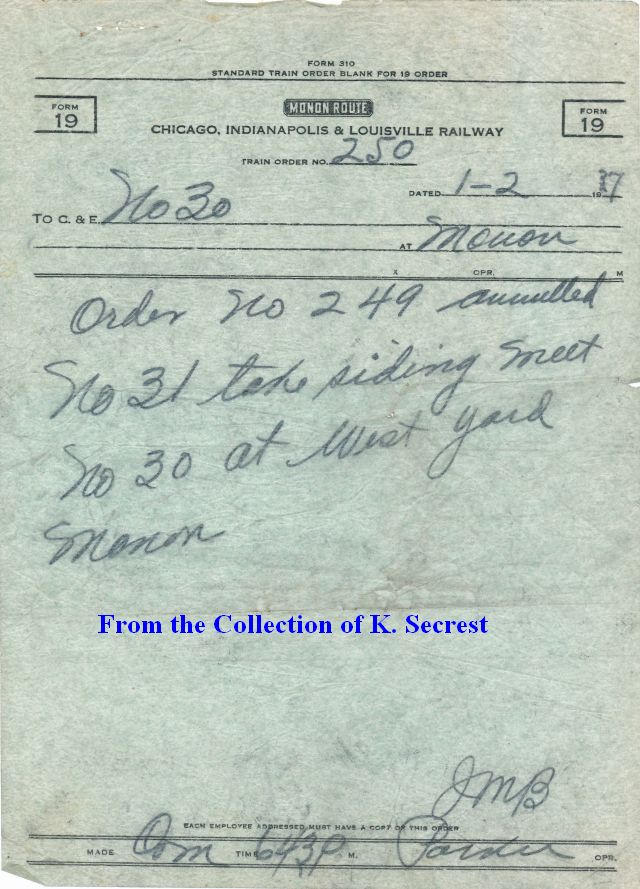 FORM 310
STANDARD TRAIN ORDER BLANK FOR 19 ORDER
FORM 19
MONON ROUTE
FORM 19
CHICAGO, INDIANAPOLIS & LOUISVILLE RAILWAY
TRAIN ORDER NO. 250
DATED 1-2 19
TO C. & E. No 30
AT Monon
X OPR. M
Order No 249 annulled
No 31 take siding meet
No 30 at West Yard
Monon
From the Collection of K. Secrest
JMB
EACH EMPLOYEE ADDRESSED MUST HAVE A COPY OF THIS ORDER
MADE Com TIME 643P M. OPR.